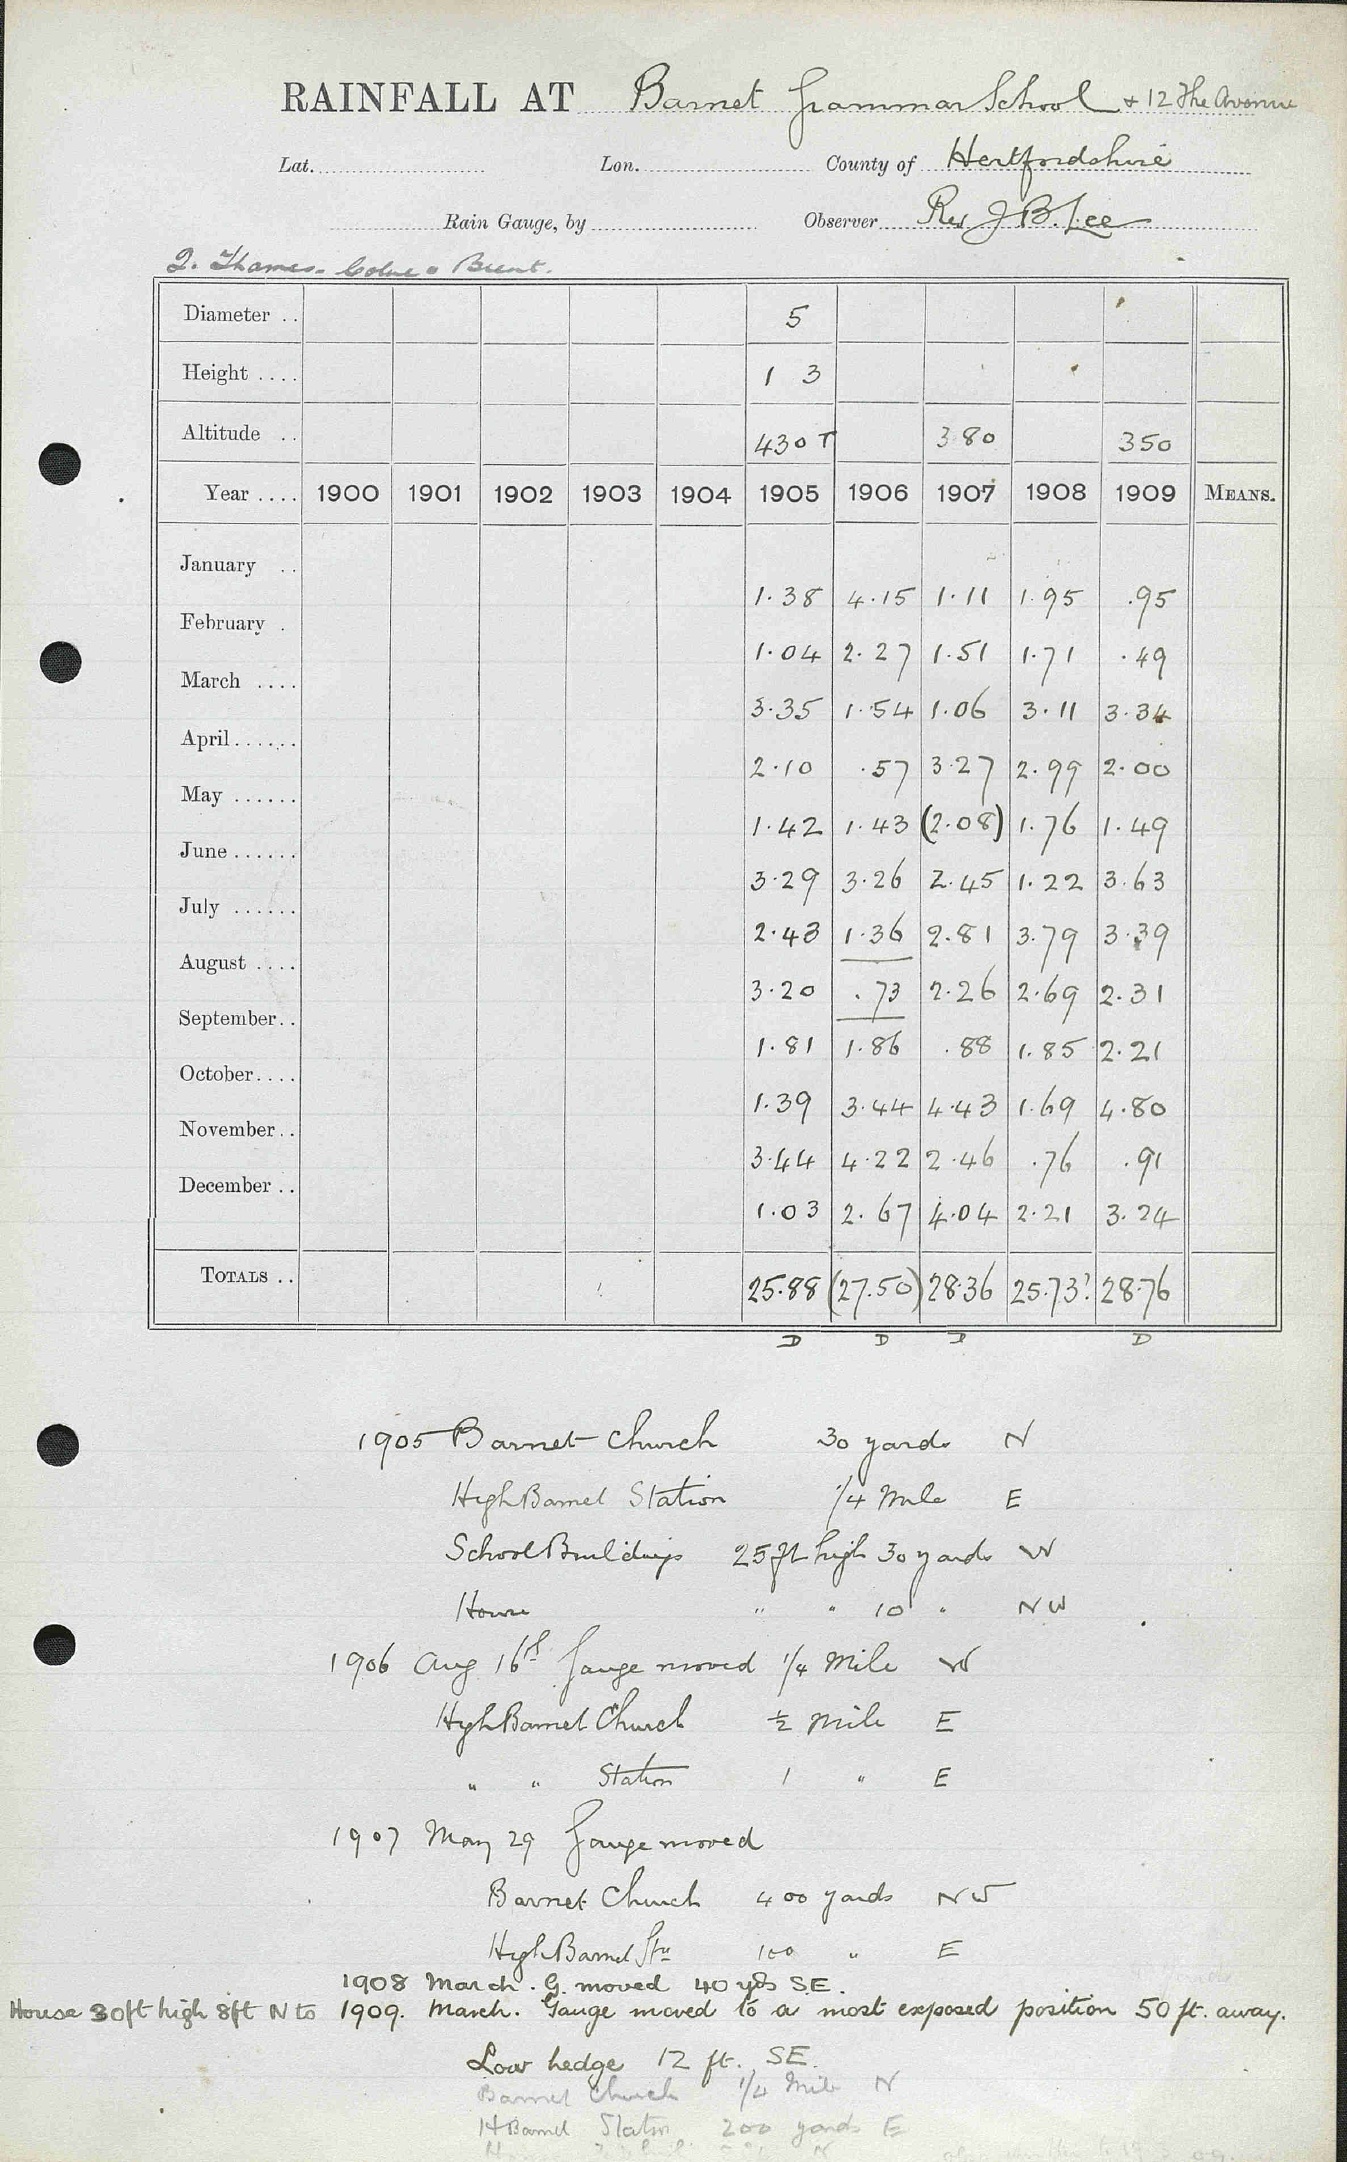 RAINFALL AT Barnet Grammar School + 12 The Avenue
Lat. Lon. County of Hertfordshire
Rain Gauge, by Observer Rev J B. Lee
2. Thames - Colne & Brent.
Diameter .. 5
Height .... 1 3
Altitude .. 430 T 380 350
Year .... 1900 1901 1902 1903 1904 1905 1906 1907 1908 1909 MEANS.
January .. 1.38 4.15 1.11 1.95 .95
February . 1.04 2.27 1.51 1.71 .49
March .... 3.35 1.54 1.06 3.11 3.34
April...... 2.10 .57 3.27 2.99 2.00
May ...... 1.42 1.43 (2.08) 1.76 1.49
June...... 3.29 3.26 2.45 1.22 3.63
July ...... 2.43 1.36 2.81 3.79 3.39
August .... 3.20 .73 2.26 2.69 2.31
September.. 1.81 1.86 .88 1.85 2.21
October.... 1.39 3.44 4.43 1.69 4.80
November.. 3.44 4.22 2.46 .76 .91
December .. 1.03 2.67 4.04 2.21 3.24
TOTALS .. 25.88 (27.50) 28.36 25.73? 28.76
D D D D
1905 Barnet Church 30 yards N
High Barnet Station 1/4 Mile E
School Buildings 25 ft high 30 yards W
House " " 10 " NW
1906 Aug 16th Gauge moved 1/4 Mile W
High Barnet Church 1/2 Mile E
" " Station 1 " E
1907 May 29 Gauge moved
Barnet Church 400 yards NW
High Barnet Stn 100 " E
1908 March. G. moved 40 yds SE.
House 30ft high 8ft N to 1909. March. Gauge moved to a most exposed position 50 ft. away.
Low hedge 12 ft. SE.
Barnet Church 1/4 Mile N
H Barnet Station 200 yards E